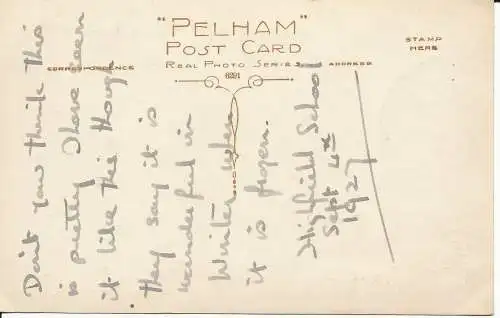 "PELHAM"
POST CARD
REAL PHOTO SERIES
CORRESPONDENCE
ADDRESS
STAMP
HERE
Don't you think this
is pretty I have seen
it like this though
they say it is
wonderful in
Winter when
it is frozen.
Highfield School
Sept 4th
1927